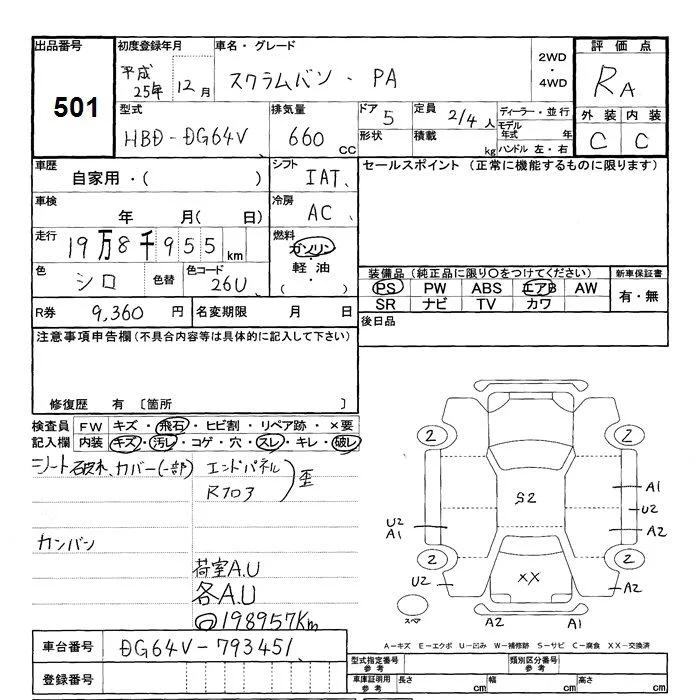 出品番号
501
初度登録年月
平成
25年 12月
車名・グレード
スクラムバン・PA
2WD
・
4WD
評価点
RA
外装 内装
C C
型式
HBD-DG64V
排気量
660 CC
ドア 5
形状
定員 2/4人
積載 kg
ディーラー・並行
モデル年式 年
ハンドル 左・右
車歴
自家用・( )
シフト
IAT
セールスポイント (正常に機能するものに限ります)
車検
年 月( 日)
冷房
AC
走行
19万8千955km
燃料
ガソリン
・
軽油
( ・ )
色
シロ
色替
色コード
26U
装備品 (純正品に限り○をつけてください)
PS PW ABS エアB AW
SR ナビ TV カワ
新車保証書
有・無
R券 9,360 円
名変期限 月 日
後日品
注意事項申告欄(不具合内容等は具体的に記入して下さい)
修復歴 有 〔箇所 〕
検査員
記入欄
FW キズ・飛石・ヒビ割・リペア跡・×要
内装 キズ・汚レ・コゲ・穴・スレ・キレ・破レ
シート破れ、カバー(一部)
エンドパネル
Rフロア
歪
カンバン
荷室A.U
各A.U
198957Km
2 2
S2
A1
U2
A2
U2
A1
2 2
U2
XX
A2
スペ
A2 A1
A-キズ E-エクボ U-凹み W-補修跡 S-サビ C-腐食 XX-交換済
車台番号 DG64V-793451
登録番号
型式指定番号
参考
類別区分番号
参考
車庫証明用
参考
長さ cm 幅 cm 高さ cm